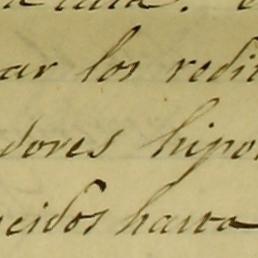 ar los redi
dores hipo
cidos hasta